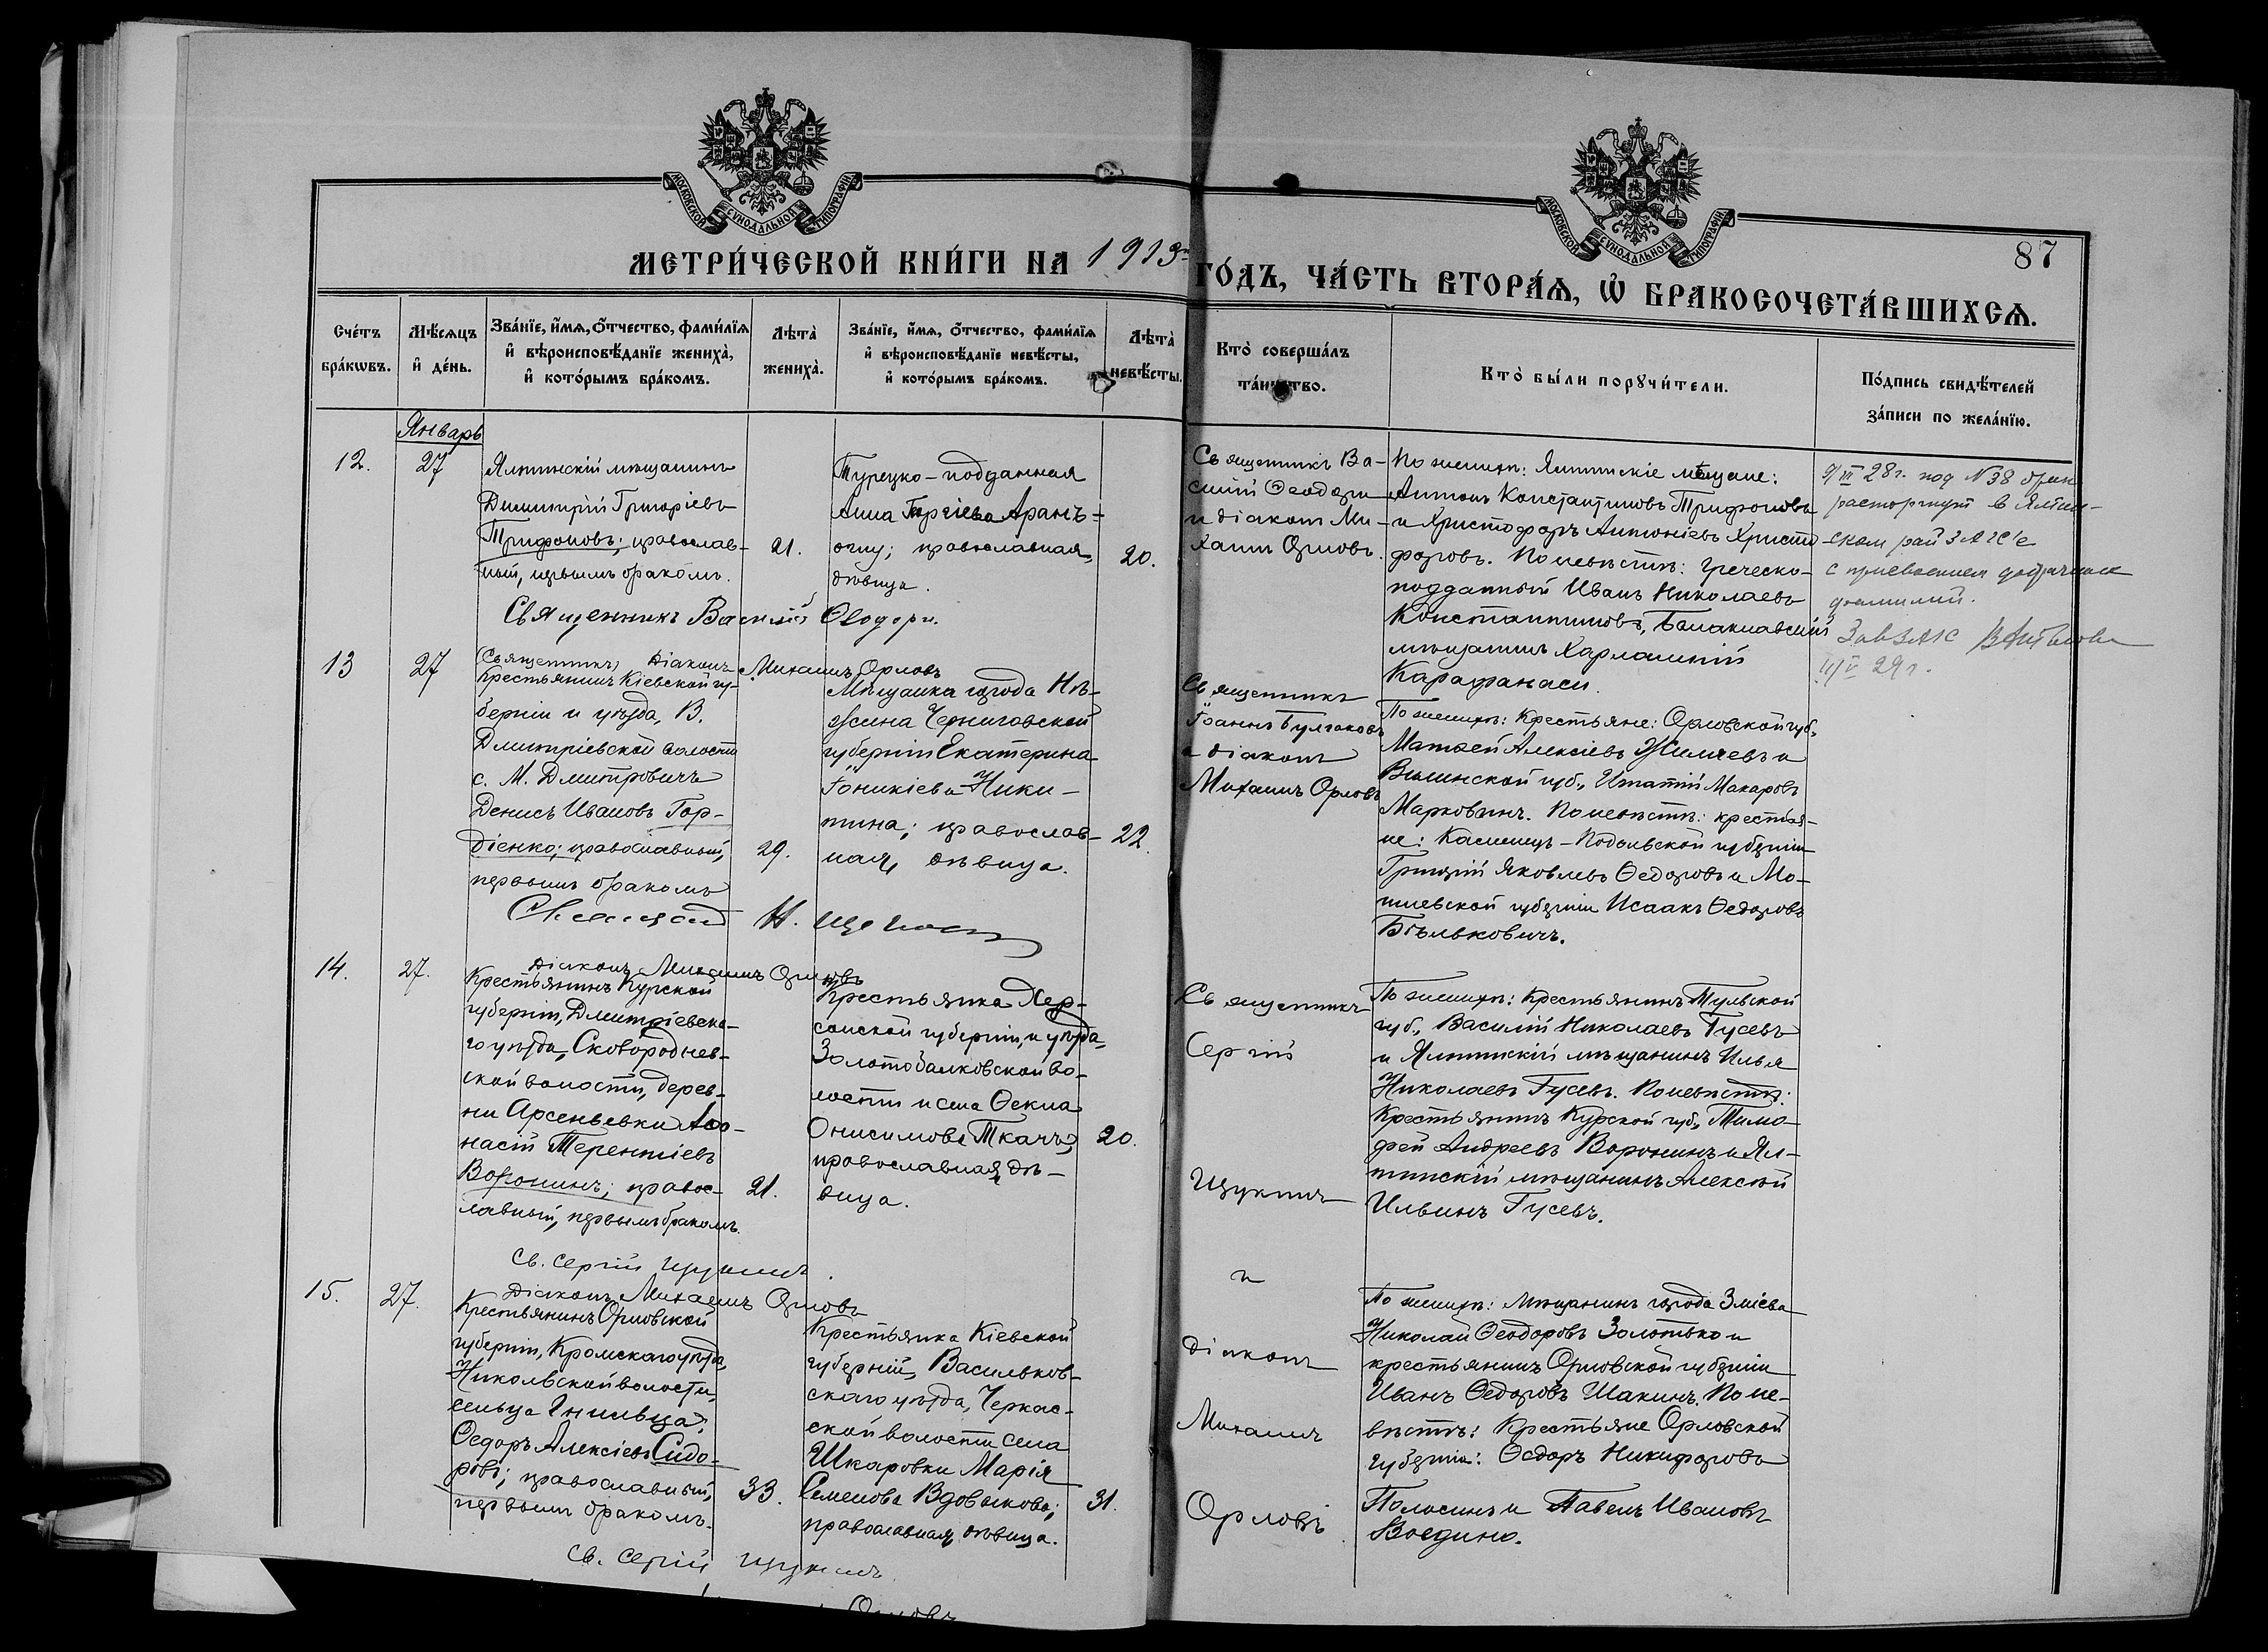 МОСКОВСКОЙ СѴНОДАЛЬНОЙ ТИПОГРАФІИ
МОСКОВСКОЙ СѴНОДАЛЬНОЙ ТИПОГРАФІИ
87
МЕТРИ́ЧЕСКОЙ КНИ́ГИ НА 1913 ГО́ДЪ, ЧА́СТЬ ВТОРА́Ѧ, Ѽ БРАКОСОЧЕТА́ВШИХСѦ.
Сче́тъ
бра́кѡвъ.
Мѣ́сѧцъ
и҆ де́нь.
Зва́нїе, и҆́мѧ, ѻ҆́тчество, фами́лїѧ
и҆ вѣроисповѣ́данїе жениха̀,
и҆ кото́рымъ бра́комъ.
Лѣта̀
жениха̀.
Зва́нїе, и҆́мѧ, ѻ҆́тчество, фами́лїѧ
и҆ вѣроисповѣ́данїе невѣ́сты,
и҆ кото́рымъ бра́комъ.
Лѣта̀
невѣ́сты.
Кто̀ соверша́лъ
та́инство.
Кто̀ бы́ли порꙋчи́тели.
По́дпись свидѣ́телей
за́писи по жела́нїю.
Январь
12.
27
Ялтинскій мѣщанинъ
Димитрій Григоріевъ
Трифоновъ; православ-
ный, первымъ бракомъ.
21.
Турецко-подданная
Анна Георгіева Аранъ-
оглу; православная,
дѣвица.
20.
Священникъ Ва-
силій Ѳеодори
и діаконъ Ми-
хаилъ Орловъ.
По женихѣ: Ялтинскіе мѣщане:
Антонъ Константиновъ Трифоновъ
и Христофоръ Антоніевъ Христо
форовъ. По невѣстѣ: греческо-
подданный Иванъ Николаевъ
Константиновъ, Балаклавскій
мѣщанинъ Харлампій
Карафанаси.
9/III 28г. под №38 брак
расторгнут в Ялтин-
ском рай ЗАГС'е
с присвоением добрачных
фамилий.
Зав ЗАГС
11/V 29г.
Священникъ Василій Ѳеодори.
(Священникъ) Діаконъ Михаилъ Орловъ
13
27
Крестьянинъ Кіевской гу-
берніи и уѣзда, В.
Дмитріевской волости
с. М. Дмитровичъ
Денисъ Ивановъ Гор-
діенко; православный,
первымъ бракомъ
29.
Мѣщанка города Нѣ-
жина Черниговской
губерніи Екатерина
Іоникіева Ники-
тина; православ-
ная, дѣвица.
22.
Священникъ
Іоаннъ Булгаковъ
и діаконъ
Михаилъ Орловъ
По женихѣ: Крестьяне: Орловской губ.,
Матѳей Алексіевъ Жиляевъ и
Виленской губ., Игнатій Макаровъ
Марковичъ. По невѣстѣ: крестья-
не: Каменецъ-Подольской губерніи
Григорій Яковлевъ Ѳедоровъ и Мо-
гилевской губерніи Исаакъ Ѳедоровъ
Бѣльковичъ.
Діаконъ Михаилъ Орловъ
14.
27.
Крестьянинъ Курской
губерніи, Дмитріевска-
го уѣзда, Сковороднев-
ской волости, дерев-
ни Арсеньевки Аѳа-
насій Терентіевъ
Воронинъ; правос-
лавный, первымъ бракомъ.
21.
Крестьянка Хер-
сонской губерніи, и уѣзда,
Золотобалковской во-
лости и села Ѳекла
Онисимова Ткачъ;
православная, дѣ-
вица.
20.
Священникъ
Сергій
Щукинъ
и
діаконъ
Михаилъ
Орловъ
По женихѣ: Крестьянинъ Тульской
губ., Василій Николаевъ Гусевъ
и Ялтинскій мѣщанинъ Илья
Николаевъ Гусевъ. По невѣстѣ:
Крестьянинъ Курской губ., Тимо-
фей Андреевъ Воронинъ и Ял-
тинскій мѣщанинъ Алексѣй
Ильинъ Гусевъ.
Св. Сергій Щукинъ.
Діаконъ Михаилъ Орловъ
15.
27.
Крестьянинъ Орловской
губерніи, Кромскаго уѣзда,
Никольской волости,
сельца Гнильца,
Ѳедоръ Алексіевъ Сидо-
ровъ; православный,
первымъ бракомъ.
33.
Крестьянка Кіевской
губерніи, Васильков-
скаго уѣзда, Черкас-
ской волости села
Шкаровки Марія
Семенова Вдовыкова;
православная, дѣвица.
31.
По женихѣ: мѣщанинъ города Зміева
Николай Ѳеодоровъ Золотько и
крестьянинъ Орловской губерніи
Иванъ Ѳедоровъ Шакинъ. По не-
вѣстѣ: Крестьяне Орловской
губерніи: Ѳедоръ Никифоровъ
Полосинъ и Павелъ Ивановъ
Воедино.
Св. Сергій Щукинъ
Орловъ